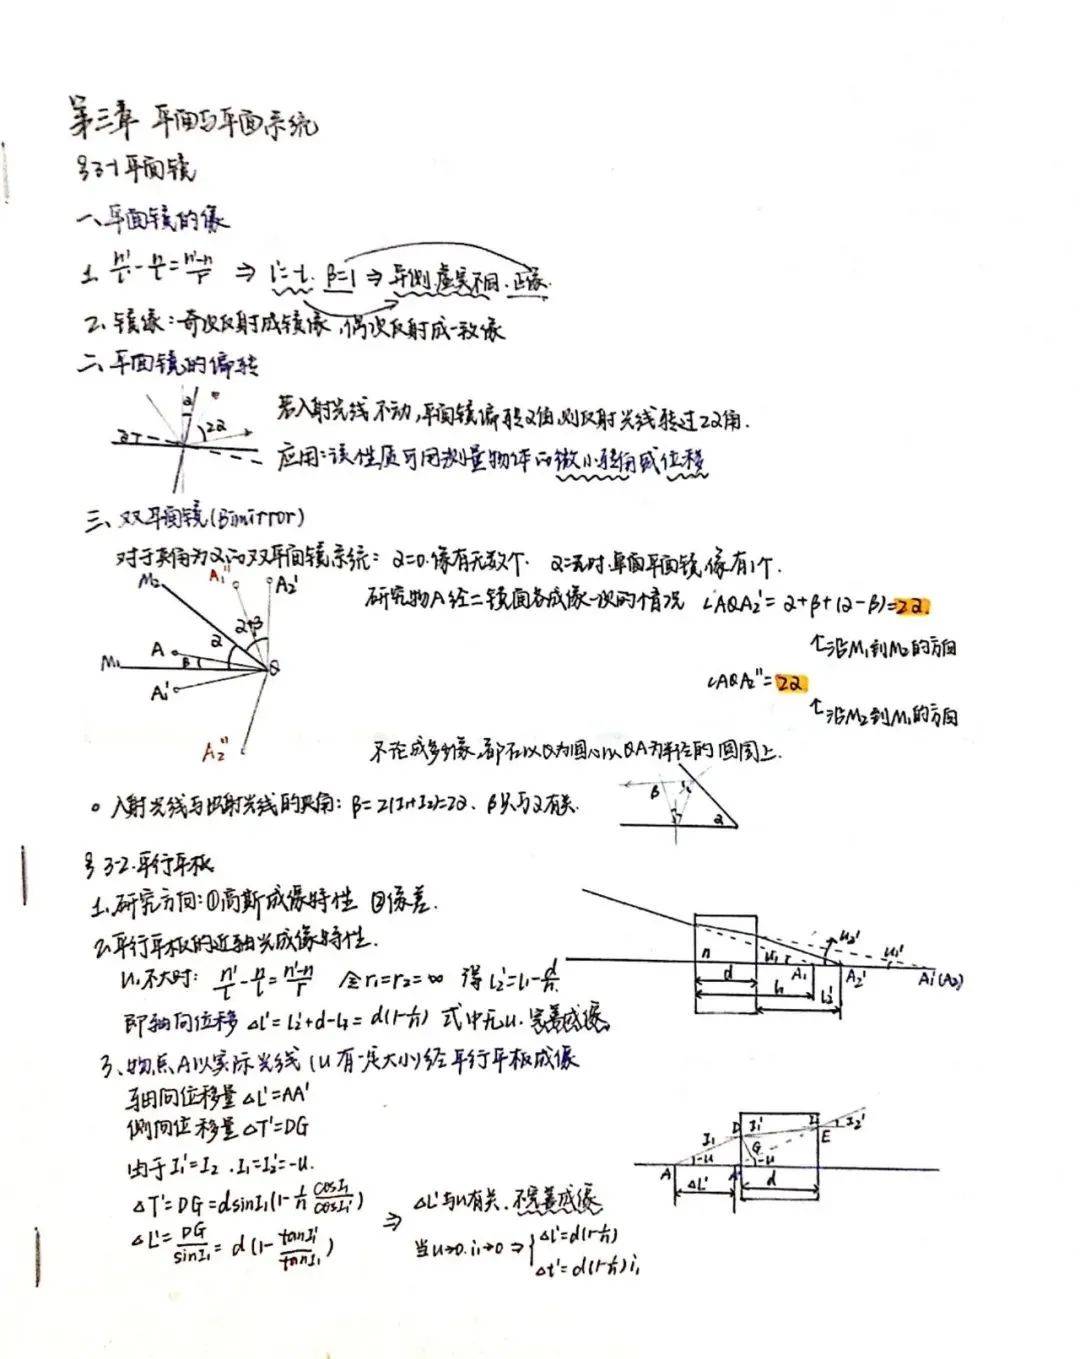 第三章 平面与平面系统
§3-1 平面镜
一、平面镜的像
1. n'/l' - n/l = (n'-n)/r ⇒ l'=-l. β=1 ⇒ 异侧,虚实不同. 正像.
2、镜像:奇次反射成镜像,偶次反射成一致像
二、平面镜的偏转
α 2α α
若入射光线不动,平面镜偏转α角,则反射光线转过2α角.
应用:该性质可用测量物体的微小转角或位移
三、双平面镜(Bimirror)
对于夹角为α的双平面镜系统: α=0.像有无数个. α=π时.单面平面镜,像有1个.
M₂ A₁'' A₂'
研究物A经二镜面各成像一次的情况 ∠AQA₂'=α+β+(α-β)=2α.
α+β α
M₁ A β Q
A₁'
A₂''
↑沿M₁到M₂的方向
∠AQA₂''=2α
↑沿M₂到M₁的方向
不论成多少像,都在以Q为圆心以QA为半径的圆周上.
β α
入射光线与出射光线的夹角: β=2(I₁+I₂)=2α. β只与α有关.
§3-2.平行平板
1、研究方向:①高斯成像特性 ②像差.
2、平行平板的近轴光成像特性.
U₁不大时: n'/l' - n/l = (n'-n)/r 令r₁=r₂=∞ 得L₂'=L₁-d/n.
即轴向位移 ΔL'=L₂'+d-L₁=d(1-1/n) 式中无u. 完善成像.
n u₁ r u₂' u₁'
d A₁ A₂' A₁'(A₂)
l₁ L₂'
3、物点A以实际光线(U有一定大小)经平行平板成像
轴向位移量ΔL'=AA'
侧向位移量ΔT'=DG
由于I₁'=I₂ .I₁=I₂'=-U.
ΔT'=DG=dsinI₁(1-1/n cosI₁/cosI₁')
ΔL'=DG/sinI₁=d(1-tanI₁'/tanI₁)
⇒ ΔL'与U有关. 不完善成像
当u→0. i₁→0 ⇒ { Δl'=d(1-1/n)
Δt'=d(1-1/n)i₁
D I₁' I₂ I₂'
I₁ G E
A -U A' -U
ΔL' d